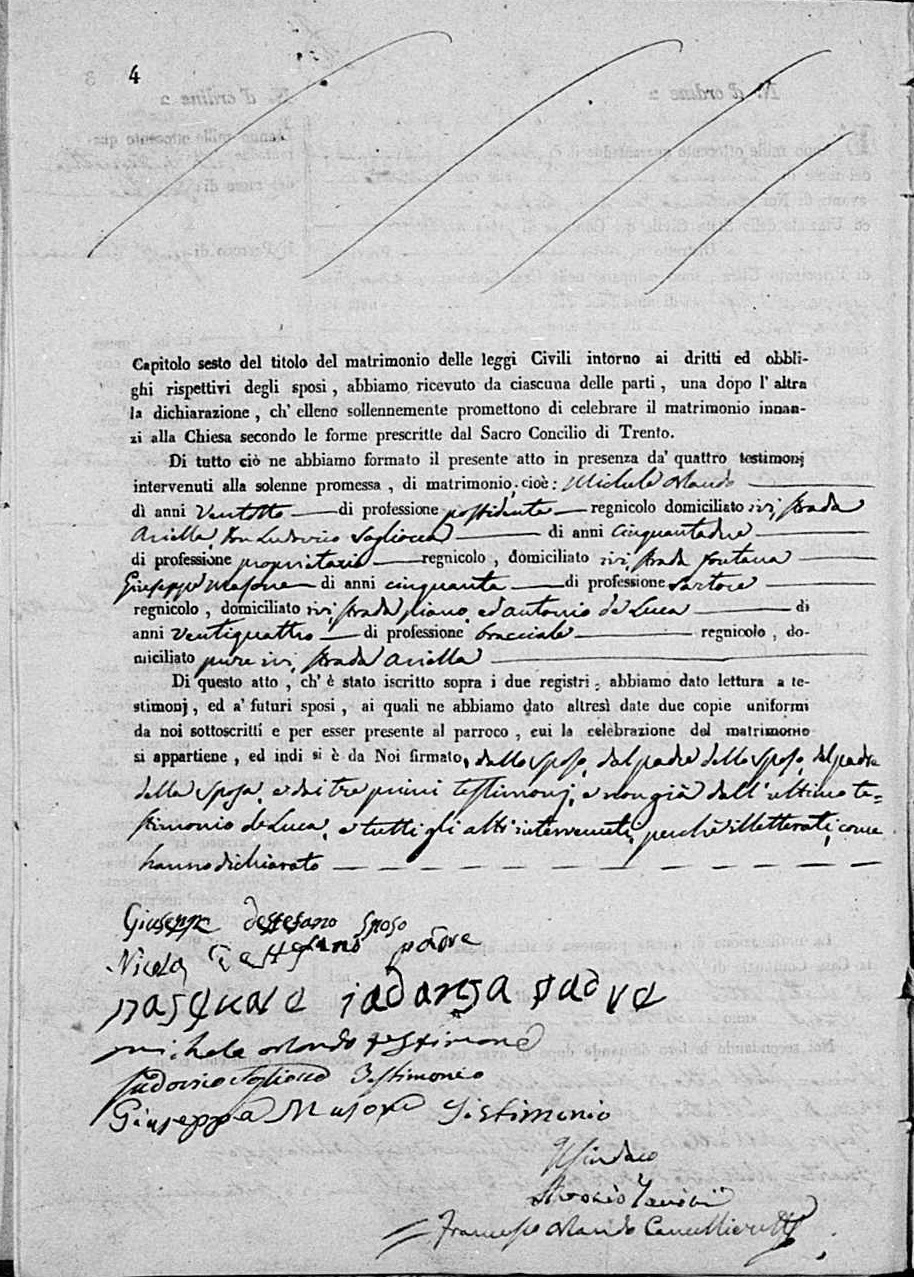 4
Capitolo sesto del titolo del matrimonio delle leggi Civili intorno ai dritti ed obbli-
ghi rispettivi degli sposi, abbiamo ricevuto da ciascuna delle parti, una dopo l'altra
la dichiarazione, ch'elleno sollennemente promettono di celebrare il matrimonio innan-
zi alla Chiesa secondo le forme prescritte dal Sacro Concilio di Trento.
Di tutto ciò ne abbiamo formato il presente atto in presenza da' quattro testimonj
intervenuti alla solenne promessa, di matrimonio, cioè: Michele Orlando
di anni ventotto di professione possidente regnicolo domiciliato ivi, strada
Ariella, Don Ludovico Sogliocca di anni cinquantadue
di professione proprietario regnicolo, domiciliato ivi, strada fontana
Giuseppe Masone di anni cinquanta di professione sartore
regnicolo, domiciliato ivi, strada piano, ed antonio de Luca di
anni ventiquattro di professione bracciale regnicolo, do-
miciliato pure ivi, strada Ariella
Di questo atto, ch'è stato iscritto sopra i due registri, abbiamo dato lettura a te-
stimonj, ed a' futuri sposi, ai quali ne abbiamo dato altresì date due copie uniformi
da noi sottoscritti e per esser presente al parroco, cui la celebrazione del matrimonio
si appartiene, ed indi si è da Noi firmato, dallo sposo, dal padre dello sposo, dal padre
della sposa, e dai tre primi testimonj, e non già dall'ultimo te=
stimonio de Luca, e tutti gli altri intervenuti, perchè illetterati, come
hanno dichiarato
Giuseppe destefano sposo
Nicola Destefano padre
pasquale iadanza padre
michele orlando testimone
Ludovico Sogliocca Testimonio
Giuseppe Masone Testimonio
Il Sindaco
Francesco Orlando Cancelliere